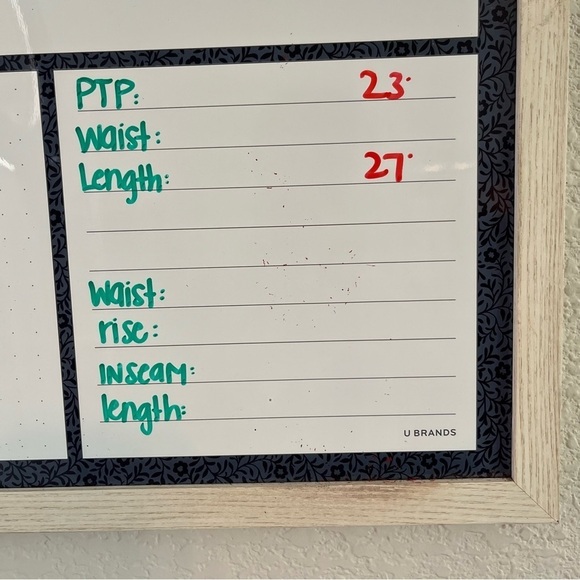 PTP: 23"
Waist:
Length: 27"
Waist:
rise:
INSeam:
length:
U BRANDS